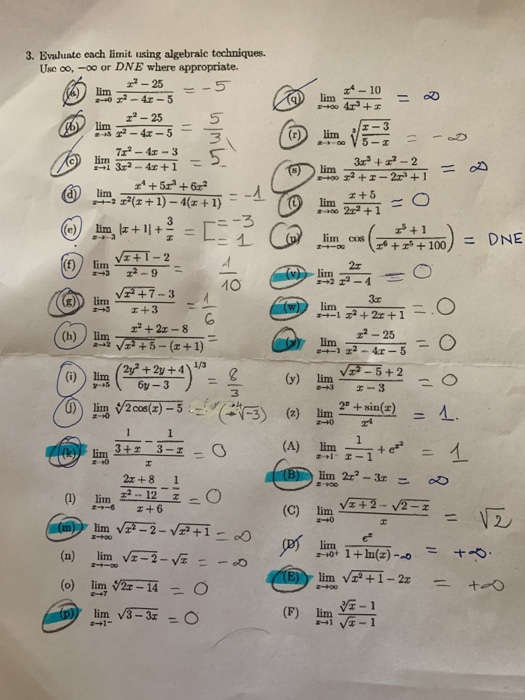 3. Evaluate each limit using algebraic techniques.
Use ∞, −∞ or DNE where appropriate.
(a) lim x→0 (x² − 25)/(x² − 4x − 5) = -5
(b) lim x→5 (x² − 25)/(x² − 4x − 5) = 5/3
(c) lim x→1 (7x² − 4x − 3)/(3x² − 4x + 1) = 5
(d) lim x→−2 (x⁴ + 5x³ + 6x²)/(x²(x + 1) − 4(x + 1)) = -1
(e) lim x→−3 |x + 1| + 3/x = [= -3 = 1
(f) lim x→3 (√(x + 1) − 2)/(x² − 9) = 1/10
(g) lim x→3 (√(x² + 7) − 3)/(x + 3) = 1/6
(h) lim x→2 (x² + 2x − 8)/(√(x² + 5) − (x + 1)) =
(i) lim y→5 ((2y² + 2y + 4)/(6y − 3))^(1/3) = 8/3
(j) lim x→0 ∜(2 cos(x) − 5) (√-3)
(k) lim x→0 (1/(3 + x) − 1/(3 − x))/x = 0
(l) lim x→−6 ((2x + 8)/(x² − 12) − 1/x)/(x + 6) = 0
(m) lim x→∞ √(x² − 2) − √(x² + 1) = ∞
(n) lim x→−∞ √(x − 2) − √x = -∞
(o) lim x→7 ∜(2x − 14) = 0
(p) lim x→1⁻ √(3 − 3x) = 0
(q) lim x→∞ (x⁴ − 10)/(4x³ + x) = ∞
(r) lim x→−∞ ∛((x − 3)/(5 − x)) = -∞
(s) lim x→∞ (3x³ + x² − 2)/(x² + x − 2x³ + 1) = ∞
(t) lim x→∞ (x + 5)/(2x² + 1) = 0
(u) lim x→−∞ cos((x⁵ + 1)/(x⁶ + x⁵ + 100)) = DNE
(v) lim x→2 2x/(x² − 4) = 0
(w) lim x→−1 3x/(x² + 2x + 1) = 0
(x) lim x→−1 (x² − 25)/(x² − 4x − 5) = 0
(y) lim x→3 (√(x² − 5) + 2)/(x − 3) = 0
(z) lim x→0 (2ˣ + sin(x))/x⁴ = 1.
(A) lim x→1⁻ 1/(x − 1) + e^(x²) = 1
(B) lim x→∞ 2x² − 3x = ∞
(C) lim x→0 (√(x + 2) − √(2 − x))/x = √2
(D) lim x→0⁺ eˣ/(1 + ln(x)) -∞ = +∞.
(E) lim x→∞ √(x² + 1) − 2x = +∞
(F) lim x→1 (∛x − 1)/(√x − 1)